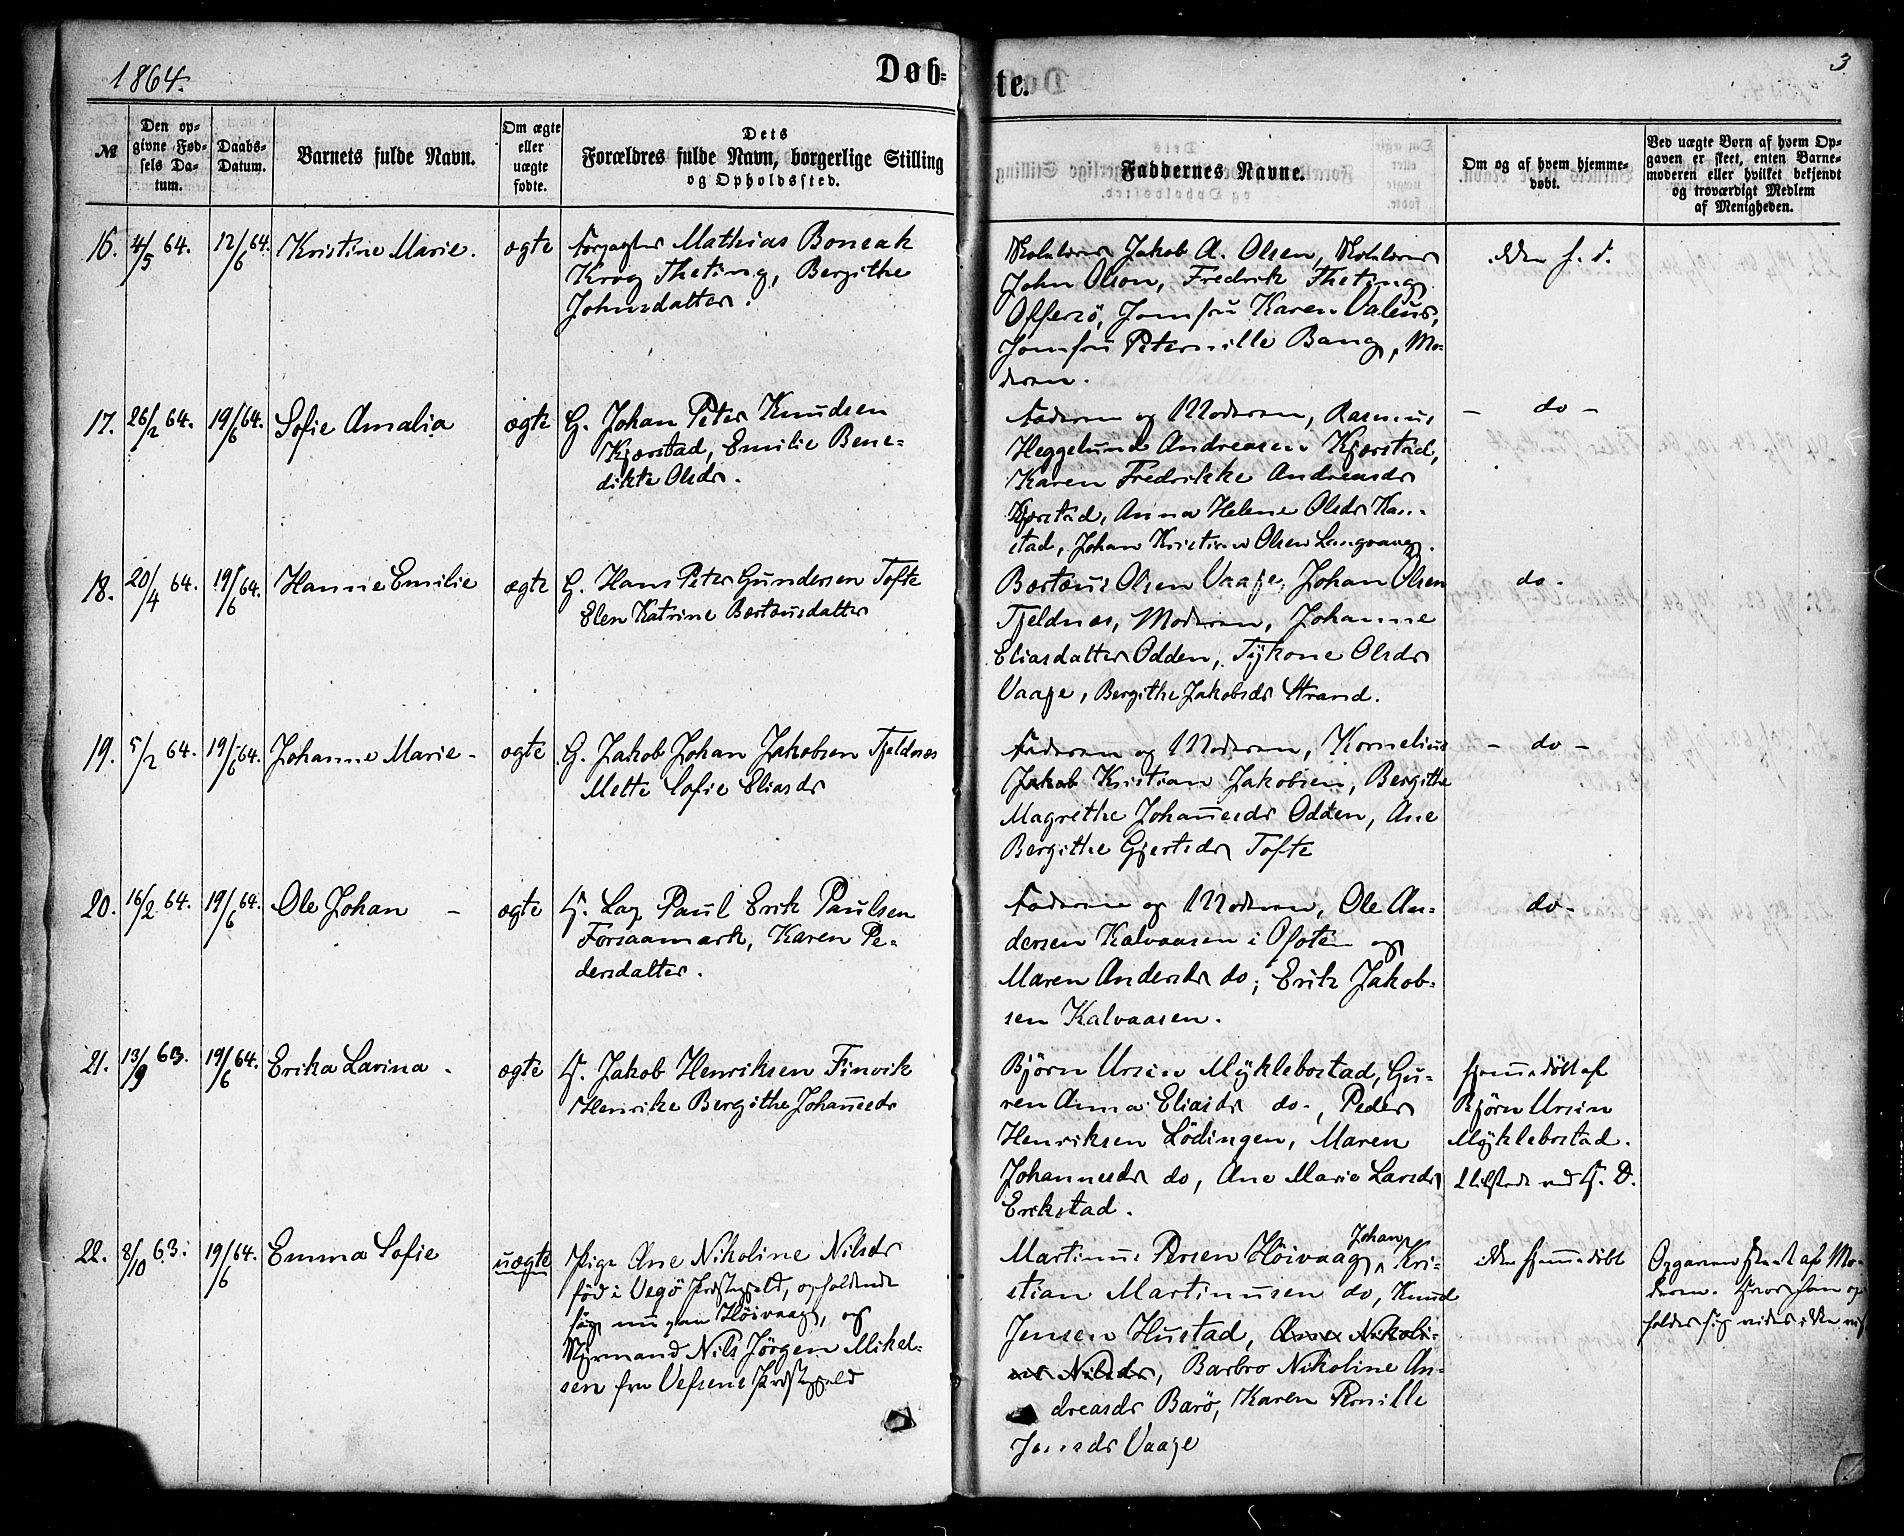 1864.
Døb-
te.
3
№
Den op-
givne Fød-
sels Da-
tum.
Daabs-
Datum.
Barnets fulde Navn.
Om ægte
eller
uægte
fødte.
Dets
Forældres fulde Navn, borgerlige Stilling
og Opholdssted.
Faddernes Navne.
Om og af hvem hjemme-
døbt.
Ved uægte Børn af hvem Op-
gaven er skeet, enten Barne-
moderen eller hvilket bekjendt
og troværdigt Medlem
af Menigheden.
16.
4/5 64.
12/6 64.
Kristine Marie.
ægte
Forpagter Mathias Bonsak
Krog Theting, Bergithe
Johnsdatter.
Jakob A. Olsen,
John Olson, Fredrik Theting
Offersö, Jomfru Karen Valeur,
Jomfru Peternille Bang, Mo-
deren.
ikke h. d.
17.
26/2 64.
19/6 64.
Sofie Amalia
ægte
G. Johan Peter Knudsen
Kjærstad, Emilie Bene-
dikte Olsdr.
Faderen og Moderen, Rasmus
Heggelund Andreasen Kjærstad,
Karen Fredrikke Andreasdr
Kjærstad, Anna Helene Olsdr Kær-
stad, Johan Kristian Olsen Langvaag.
- do -
18.
20/4 64.
19/6 64.
Hanne Emilie
ægte
G. Hans Peter Gundersen Tofte
Elen Katrine Berteusdatter
Berteus Olsen Vaage, Johan Olsen
Tjeldnæs, Moderen, Johanne
Eliasdatter Odden, Tykone Olsdr
Vaage, Bergithe Jakobsdr Strand.
do -
19.
5/2 64.
19/6 64.
Johanne Marie -
ægte
G. Jakob Johan Jakobsen Tjeldnæs
Mette Sofie Eliasdr
Faderen og Moderen, Kornelius
Jakob Kristian Jakobsen, Bergithe
Magrethe Johannesdr Odden, Ane
Bergithe Gjertsdr Tofte
- do -
20.
16/2 64.
19/6 64.
Ole Johan -
ægte
G. Lap Paul Erik Paulsen
Forsaamark, Karen Pe-
dersdatter.
Faderen og Moderen, Ole An-
dersen Kalvaasen i Ofoten og
Maren Andersdr do, Erik Jakob-
sen Kalvaasen.
do -
21.
13/9 63.
19/6 64.
Erika Lavina.
ægte
G. Jakob Henriksen Finvik
Henrike Bergithe Johannesdr
Björn Ursin Myklebostad, Gu-
ren Anna Eliasdr do., Peder
Henriksen Lödingen, Maren
Johannesdr do, Ane Marie Larsdr
Erikstad.
hjemmedöbt af
Björn Ursin
Myklebostad.
22.
8/10 63.
19/6 64.
Emma Sofie
uægte
Pige Ane Nikoline Nilsdr
föd i Vegö Præstegjeld, opholdende
sig nu paa Höivaag, og
Styrmand Nils Jörgen Mikel-
sen fra Vefsens Præstegjeld
Martinus Persen Höivaag, Johan Kri-
stian Martinusen do, Knud
Jensen Hustad, Anne Nikoli-
ne Nilsdr, Barbro Nikoline An-
dreasdr Barö, Karen Pernille
Jensdr Vaage
ikke hjemmedöbt
Opgaven skeet af Mo-
deren. Hvor han op-
holder sig vides ikke